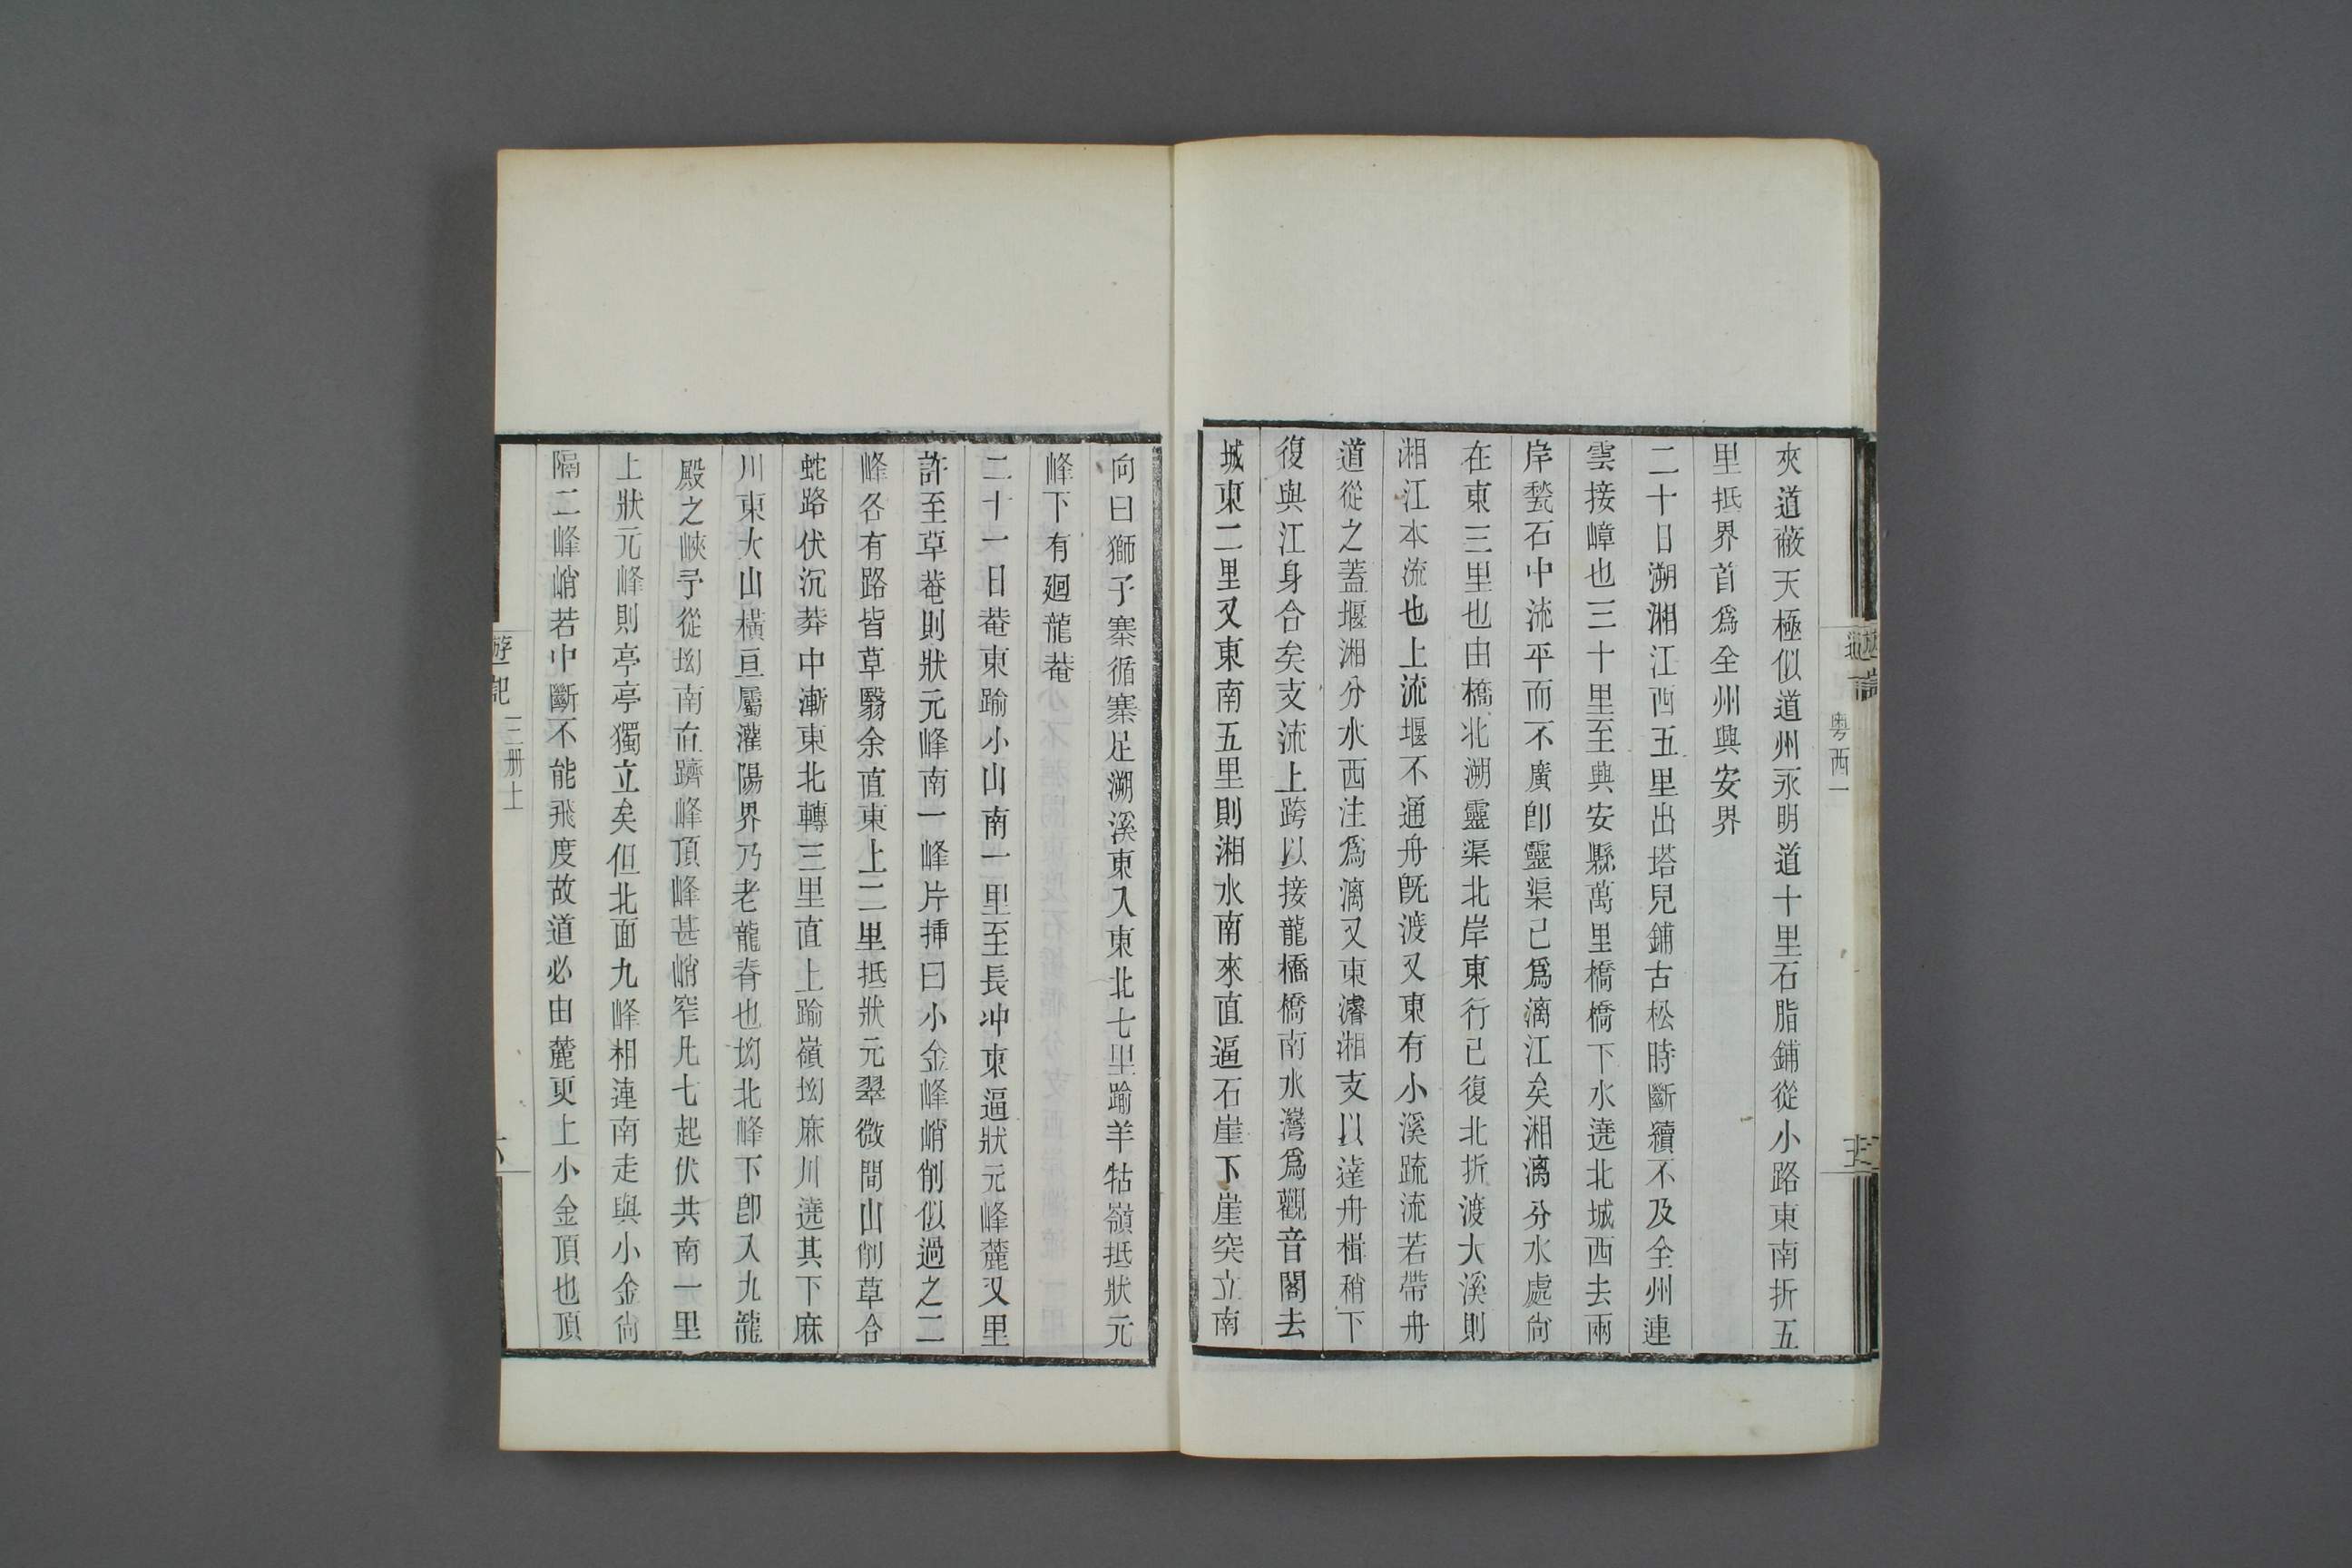 夾道蔽天極似道州永明道十里石脂鋪從小路東南折五
里抵界首爲全州興安界
二十日溯湘江西五里出塔兒鋪古松時斷續不及全州連
雲接嶂也三十里至興安縣萬里橋橋下水遶北城西去兩
岸甃石中流平而不廣卽靈渠已爲漓江矣湘漓分水處尙
在東三里也由橋北溯靈渠北岸東行已復北折渡大溪則
湘江本流也上流堰不通舟旣渡又東有小溪疏流若帶舟
道從之蓋堰湘分水西注爲漓又東濬湘支以達舟楫稍下
復與江身合矣支流上跨以接龍橋橋南水灣爲觀音閣去
城東二里又東南五里則湘水南來直逼石崖下崖突立南
向曰獅子寨循寨足溯溪東入東北七里踰羊牯嶺抵狀元
峰下有廻龍菴
二十一日菴東踰小山南一里至長冲東逼狀元峰麓又里
許至草菴則狀元峰南一峰片揷曰小金峰峭削似過之二
峰各有路皆草翳余直東上二里抵狀元翠微間山削草合
蛇路伏沉莽中漸東北轉三里直上踰嶺坳麻川遶其下麻
川東大山橫亘屬灌陽界乃老龍脊也坳北峰下卽入九龍
殿之峽予從坳南直躋峰頂峰甚峭窄凡七起伏共南一里
上狀元峰則亭亭獨立矣但北面九峰相連南走與小金尙
隔二峰峭若中斷不能飛度故道必由麓更上小金頂也頂
遊記
三册上
粤西一